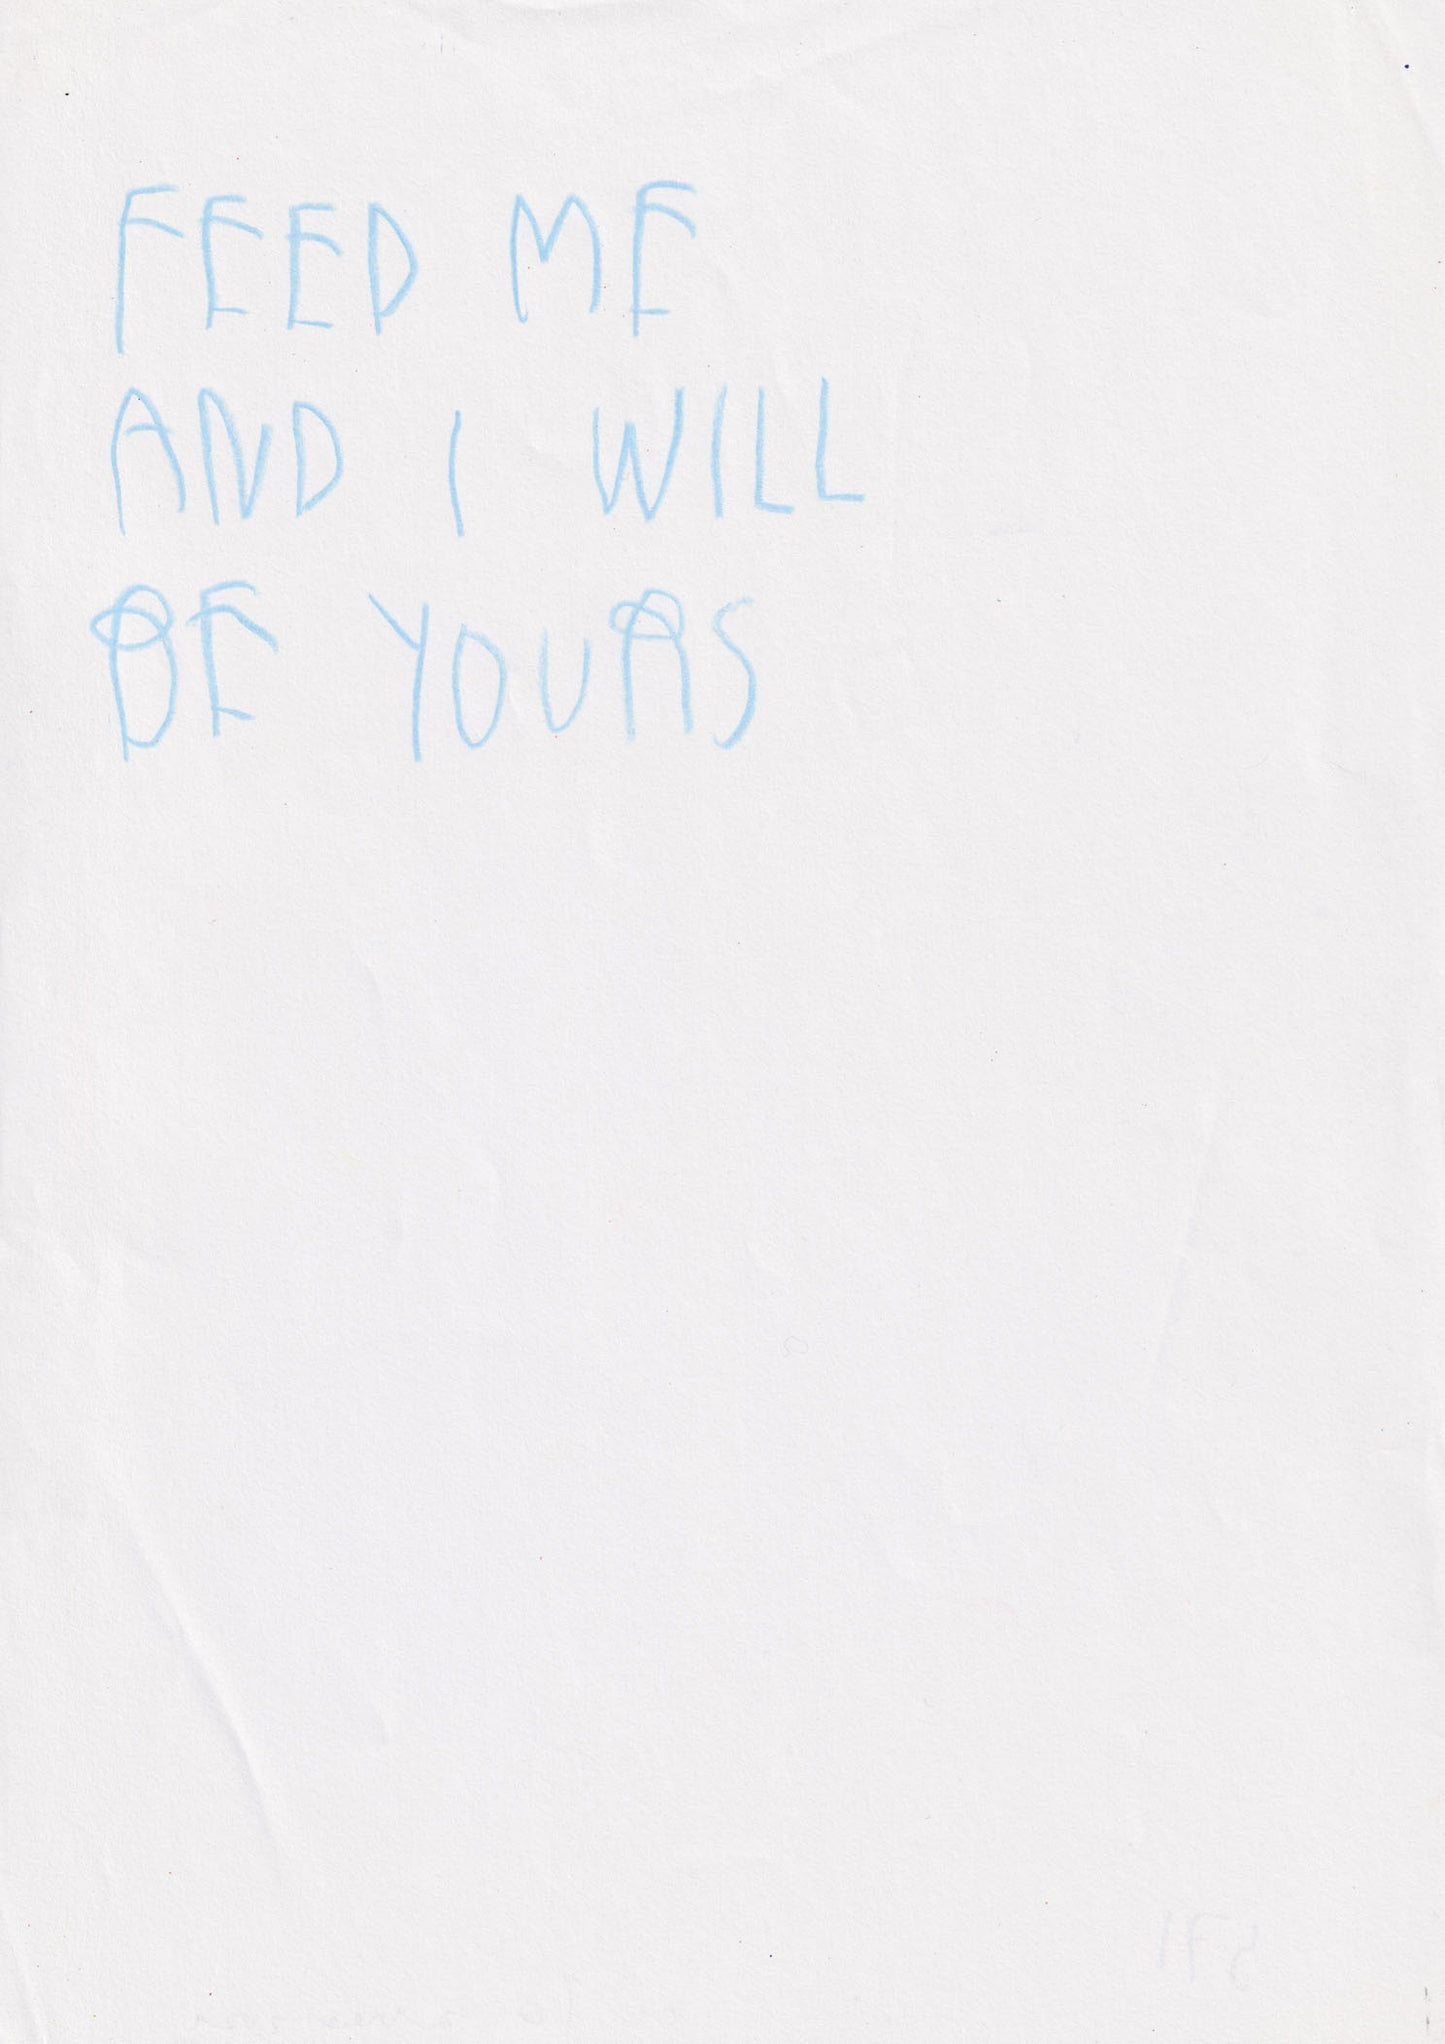 FEED ME
AND I WILL
BE YOURS